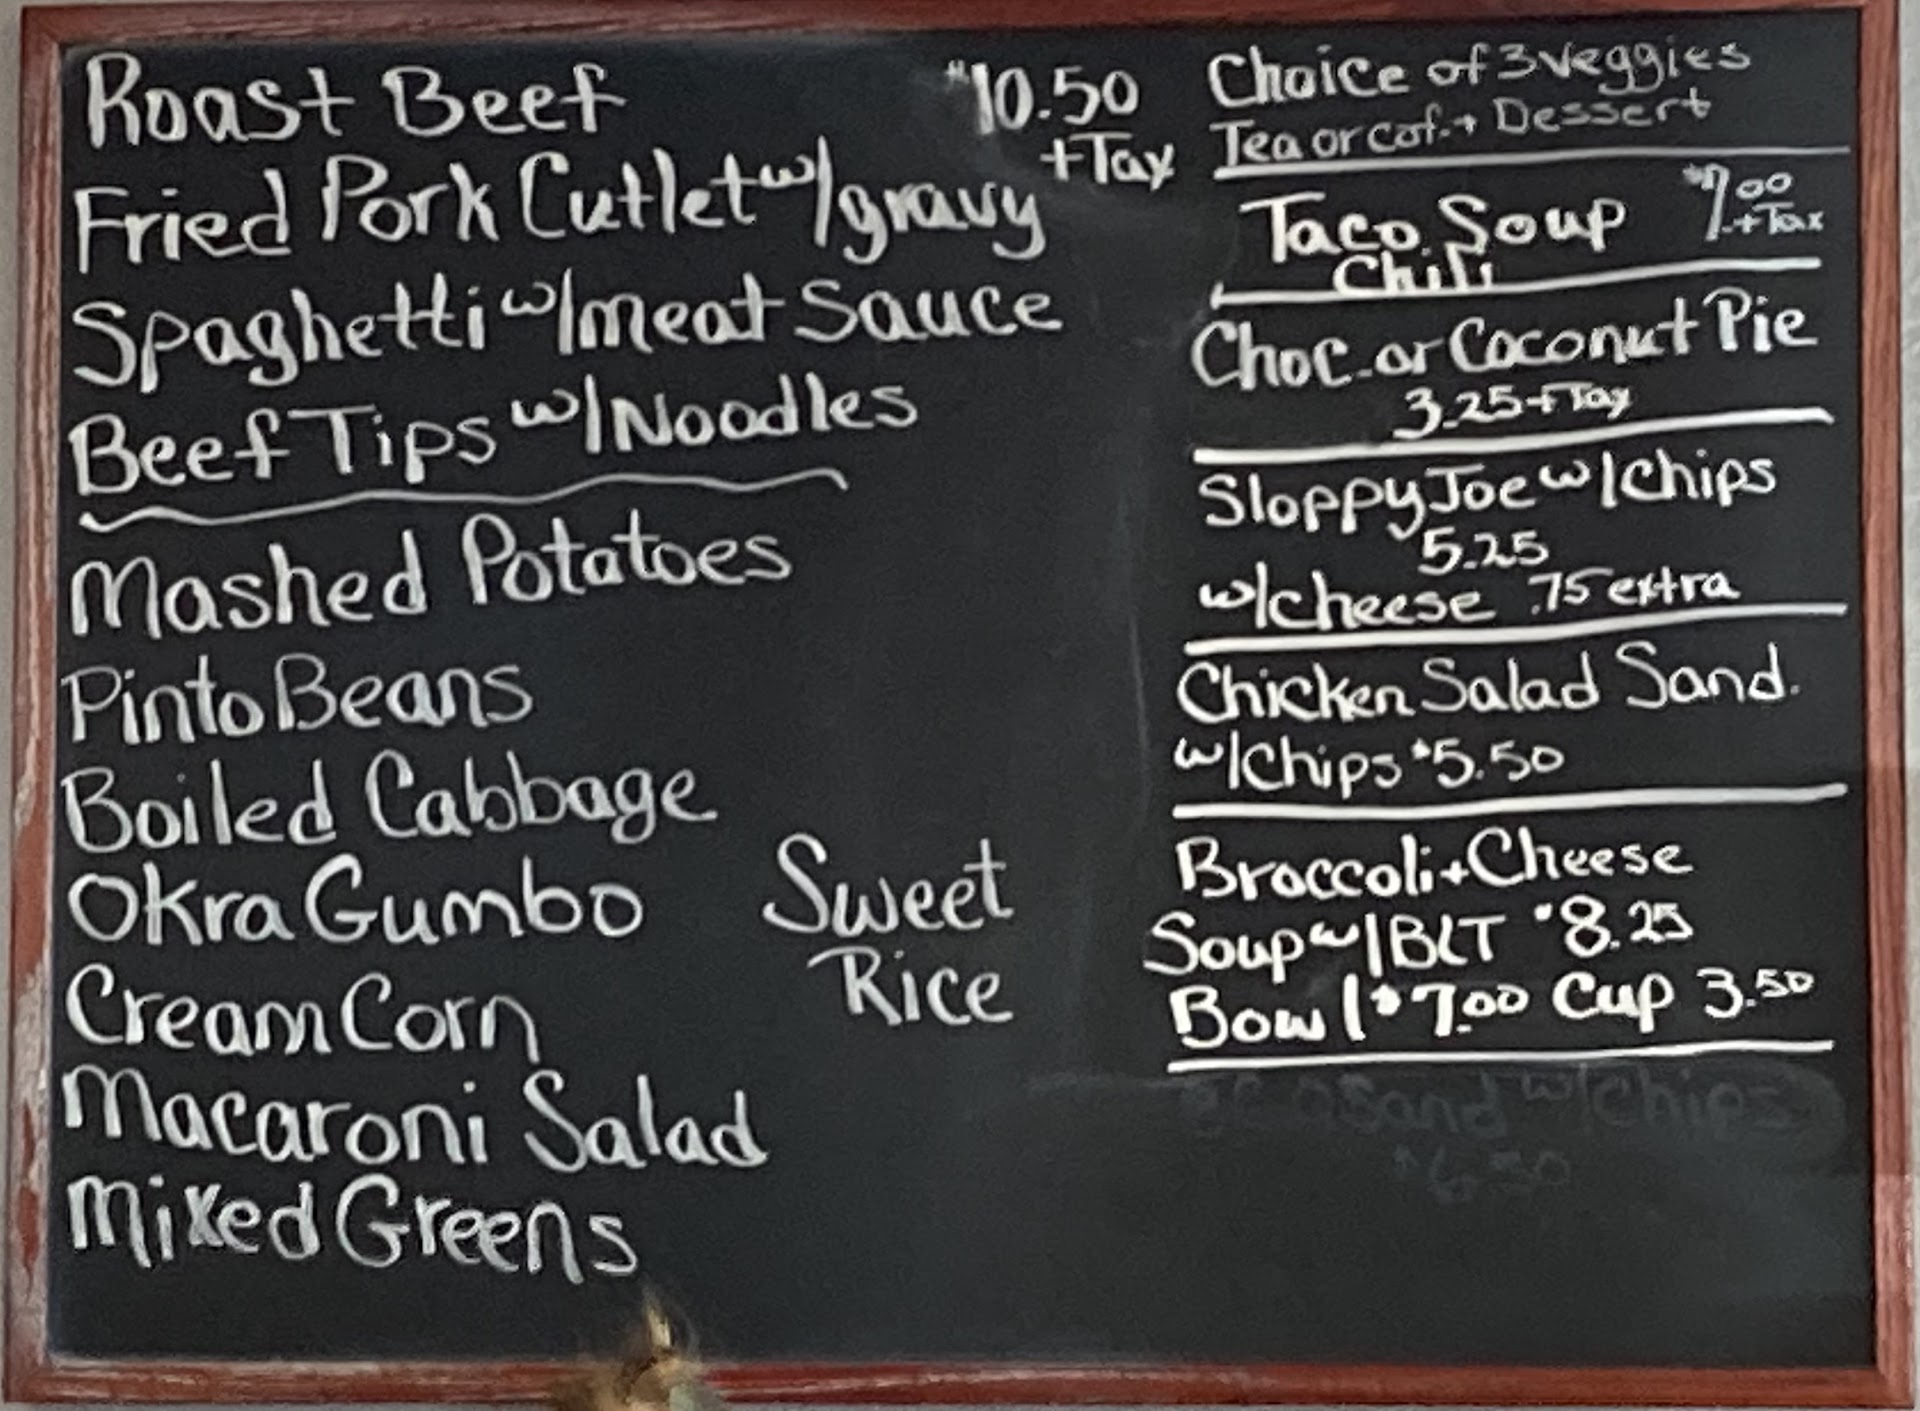 Roast Beef $10.50
+Tax
Fried Pork Cutlet w/gravy
Spaghetti w/meat Sauce
Beef Tips w/Noodles
Mashed Potatoes
Pinto Beans
Boiled Cabbage
Okra Gumbo
Cream Corn
Macaroni Salad
Mixed Greens
Sweet
Rice
Choice of 3 Veggies
Tea or cof. + Dessert
Taco Soup $7.00
+Tax
Chili
Choc. or Coconut Pie
3.25 + Tax
Sloppy Joe w/Chips
5.25
w/cheese .75 extra
Chicken Salad Sand.
w/Chips $5.50
Broccoli + Cheese
Soup w/BLT $8.25
Bowl $7.00 Cup 3.50
Sand w/Chips